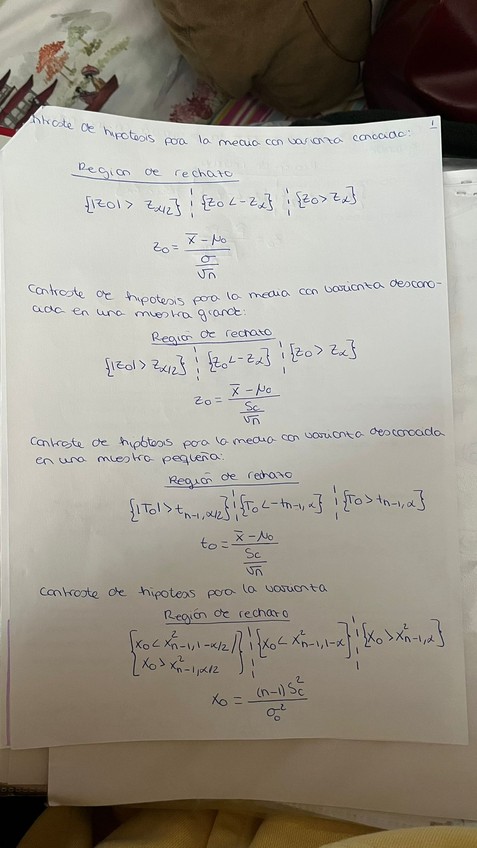 ntraste de hipotesis para la media con varianza conocida:
1
Región de rechazo
{|Z0| > Zα/2} ¦ {Z0 < -Zα} ¦ {Z0 > Zα}
Z0 = (x̄ - μ0) / (σ/√n)
Contraste de hipotesis para la media con varianza descono-
cida en una muestra grande:
Región de rechazo
{|Z0| > Zα/2} ¦ {Z0 < -Zα} ¦ {Z0 > Zα}
Z0 = (x̄ - μ0) / (Sc/√n)
Contraste de hipótesis para la media con varianza desconocida
en una muestra pequeña:
Región de rechazo
{|T0| > t n-1, α/2} ¦ {T0 < -t n-1, α} ¦ {T0 > t n-1, α}
t0 = (x̄ - μ0) / (Sc/√n)
Contraste de hipotesis para la varianza
Región de rechazo
{X0 < X² n-1, 1-α/2 / X0 > X² n-1, α/2} ¦ {X0 < X² n-1, 1-α} ¦ {X0 > X² n-1, α}
X0 = (n-1)Sc² / σ0²